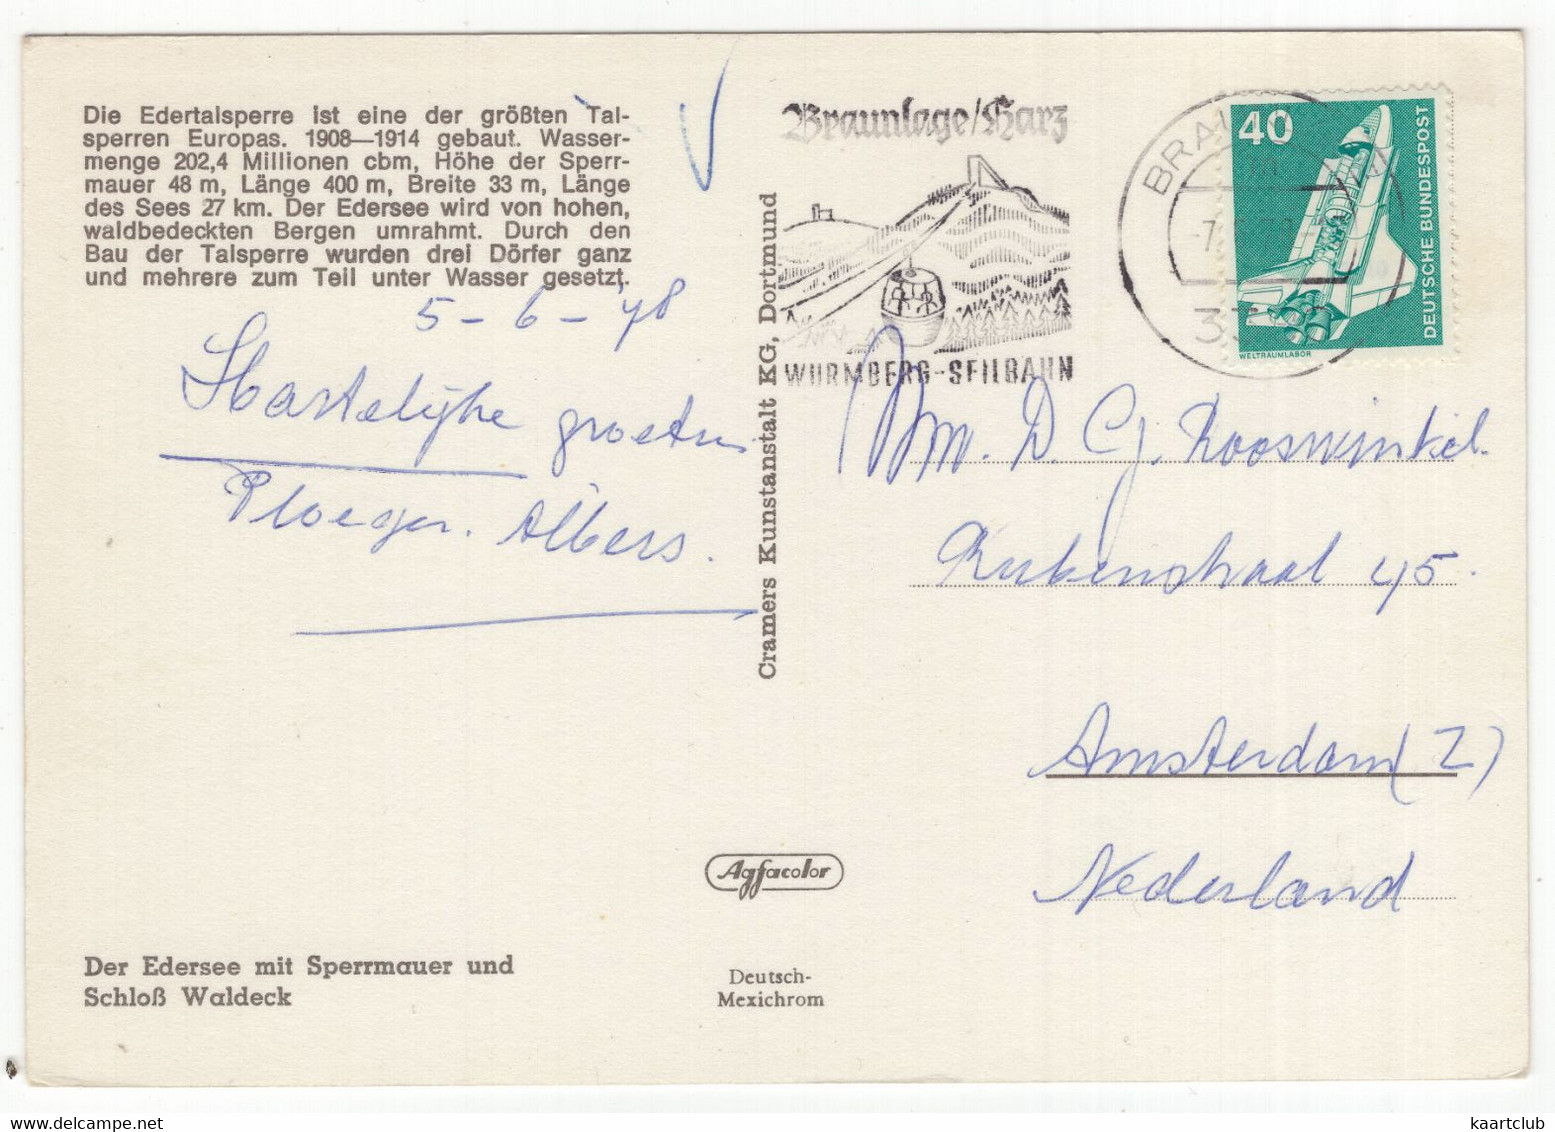 Die Edertalsperre ist eine der größten Tal-
sperren Europas. 1908—1914 gebaut. Wasser-
menge 202,4 Millionen cbm, Höhe der Sperr-
mauer 48 m, Länge 400 m, Breite 33 m, Länge
des Sees 27 km. Der Edersee wird von hohen,
waldbedeckten Bergen umrahmt. Durch den
Bau der Talsperre wurden drei Dörfer ganz
und mehrere zum Teil unter Wasser gesetzt.
5-6-78
Hartelijke groeten
Ploeger. Albers.
Der Edersee mit Sperrmauer und
Schloß Waldeck
Cramers Kunstanstalt KG, Dortmund
Agfacolor
Deutsch-
Mexichrom
Braunlage/Harz
WURMBERG-SEILBAHN
40
DEUTSCHE BUNDESPOST
WELTRAUMLABOR
Fam. D. Cj. Rooswinkel.
Rubenstraat 45.
Amsterdam (Z)
Nederland
kaartclub